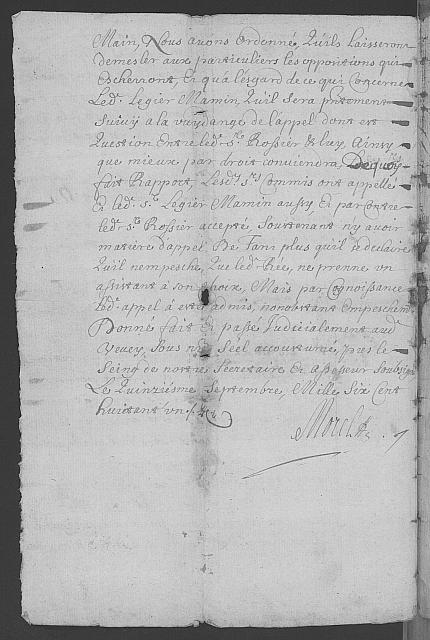 Main, Nous avons Ordonné, Quils Laisseront
demesler aux particuliers les oppositions qui
Escheront, Et qua lésgard de ce qui Concerne
Led. Legier Mamin, Quil sera pntement
suivy a la vuydange de lappel dont est
Question Entre led. Sr. Rossier & luy, Ainsy
que mieux par droit conviendra, Dequoy
fait Rapport, Lesd. Srs. Commis ont appellé
Et led. Sr. Legier Mamin aussy, Et par Contre
led. Sr. Rossier accepté, Soustenant n'y avoir
matiere dappel De tant plus quil se declaire
Quil nempesche, Que led. ne prenne un
assistant à son choix, Mais par Cognoissance
led. appel à esté admis, nonobstant Empeschemt
Donné fait Et passé Judicialement aud.
Vevey, Sous nre Séel accoustumé, pres le
Seing de nostre Secretaire Et Assesseur Soubsigné
Le Quinziesme Septembre, Mille Six Cent
huictante un
Morel